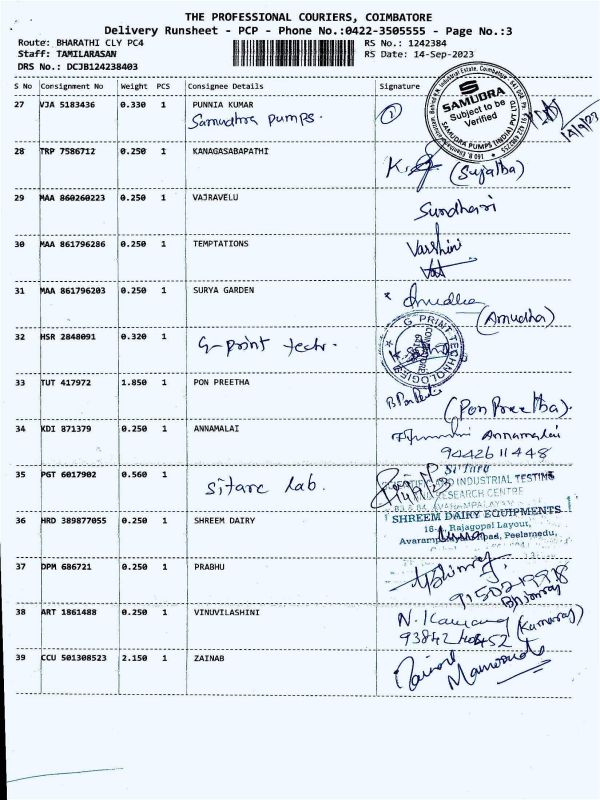 THE PROFESSIONAL COURIERS, COIMBATORE
Delivery Runsheet - PCP - Phone No.:0422-3505555 - Page No.:3
Route: BHARATHI CLY PC4 RS No.: 1242384
Staff: TAMILARASAN RS Date: 14-Sep-2023
DRS No.: DCJB124238403
S No Consignment No Weight PCS Consignee Details Signature
27 VJA 5183436 0.330 1 PUNNIA KUMAR
Samudhra pumps. 1
SAMUDRA
Subject to be
Verified
SAMUDRA PUMPS (INDIA) PVT LTD
14/9/23
28 TRP 7586712 0.250 1 KANAGASABAPATHI
(Sujatha)
29 MAA 860260223 0.250 1 VAJRAVELU
Sundhari
30 MAA 861796286 0.250 1 TEMPTATIONS
Varshini
31 MAA 861796203 0.250 1 SURYA GARDEN
Anudha
(Amudha)
32 HSR 2848091 0.320 1
G-print tech.
G PRINT TECHNOLOGIES
33 TUT 417972 1.850 1 PON PREETHA
(Pon Preetha).
34 KDI 871379 0.250 1 ANNAMALAI
Annamalai
9442611448
35 PGT 6017902 0.560 1
Sitarc lab.
SITARC
SCIENTIFIC AND INDUSTRIAL TESTING
AND RESEARCH CENTRE
36 HRD 389877055 0.250 1 SHREEM DAIRY
SHREEM DAIRY EQUIPMENTS
Rajagopal Layout,
Road, Peelamedu,
37 DPM 686721 0.250 1 PRABHU
38 ART 1861488 0.250 1 VINUVILASHINI
(Kumaraj)
39 CCU 501308523 2.150 1 ZAINAB